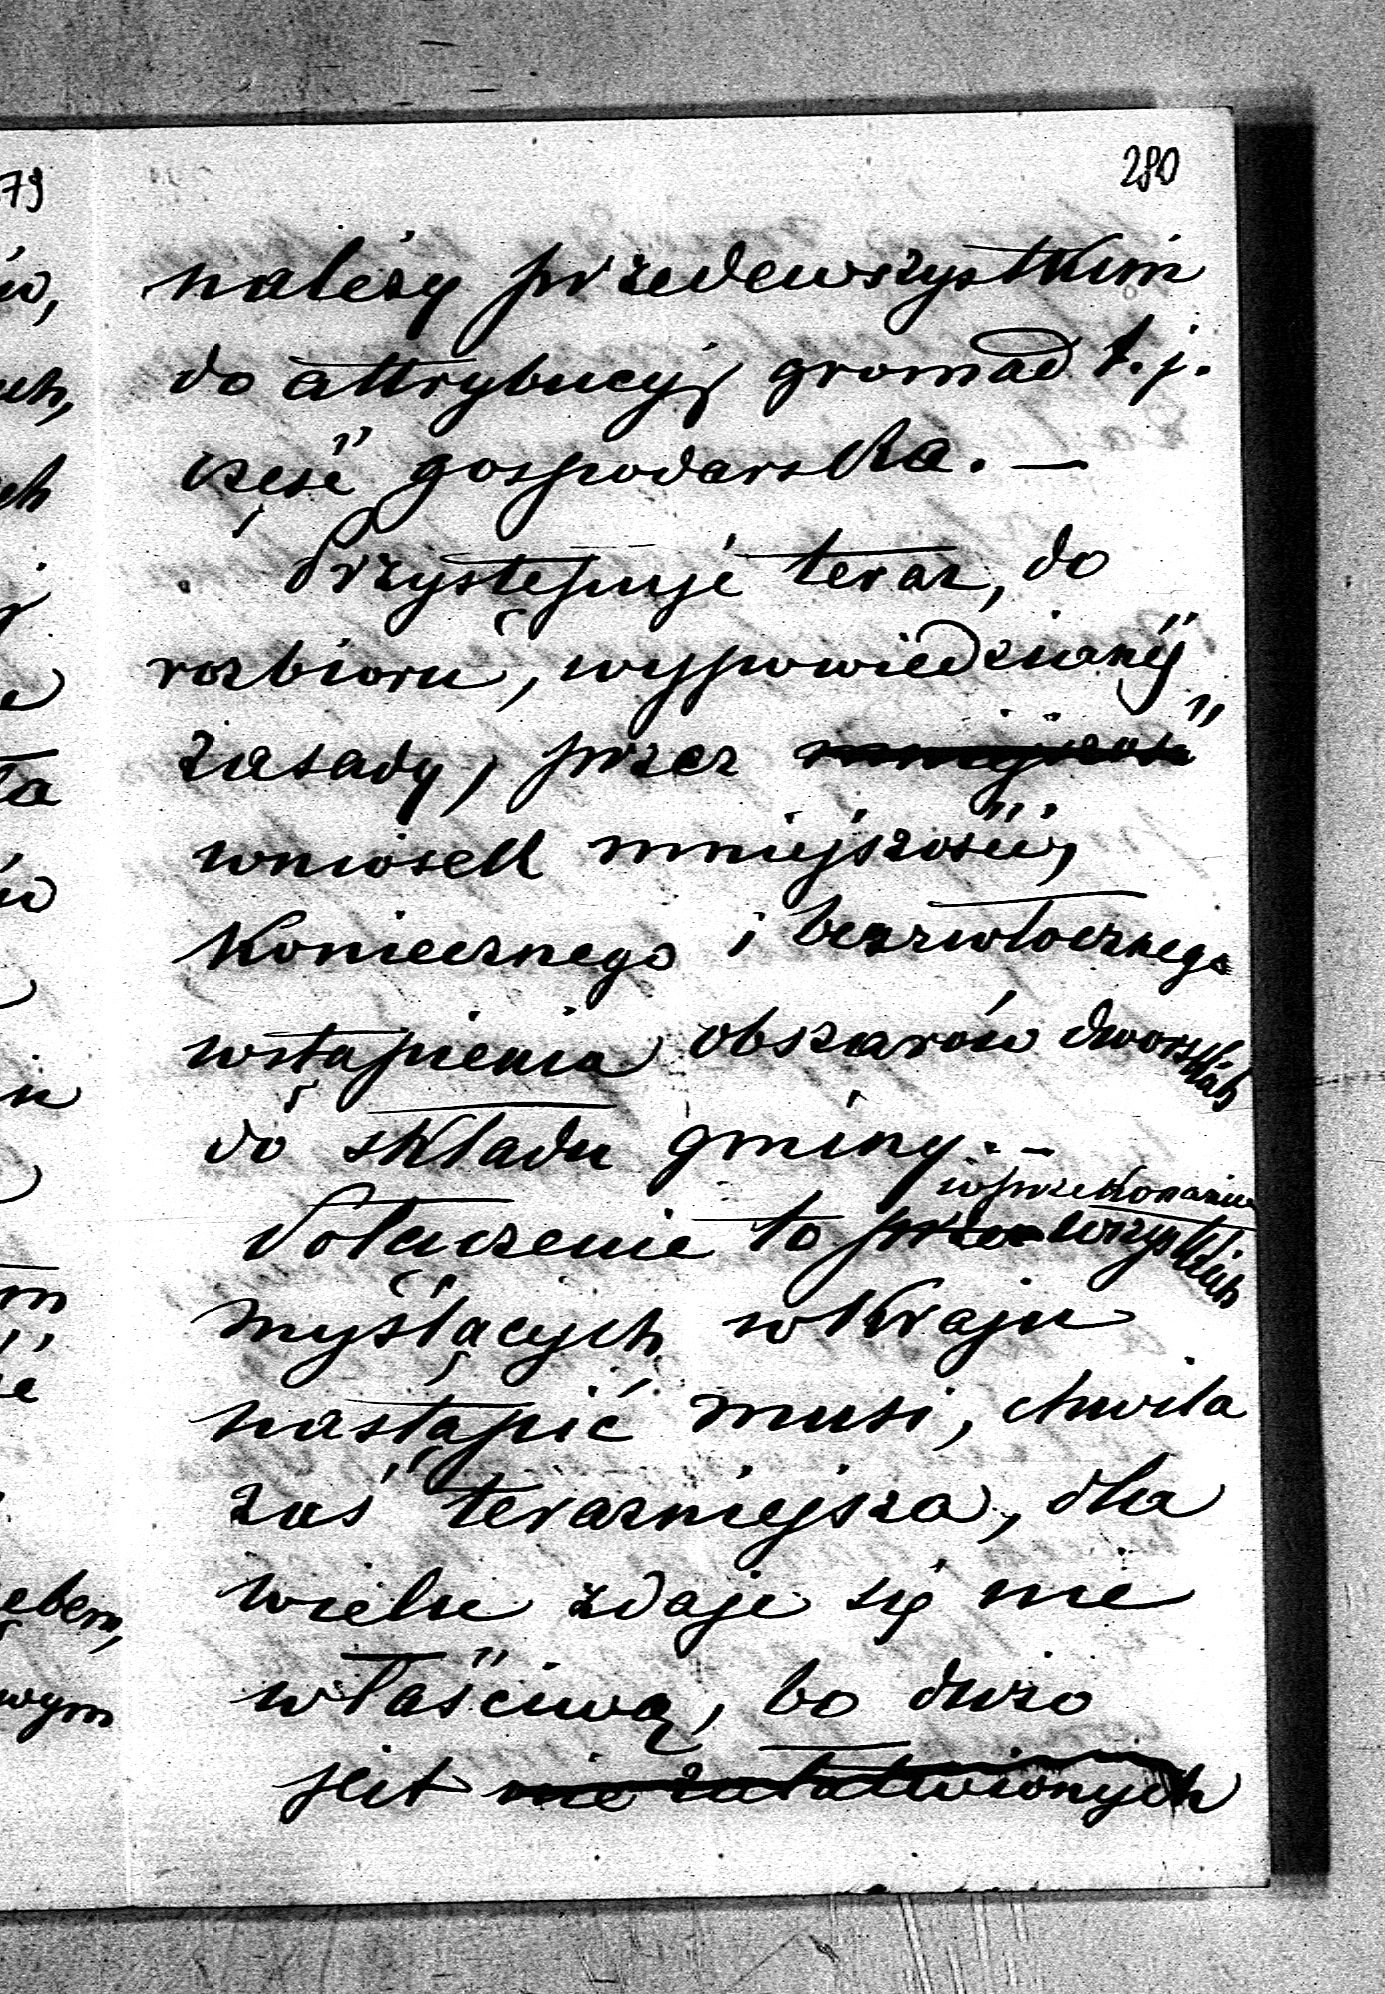 79
280
należy przedewszystkim
do attrybucyj gromad t.j.
część gospodarska. —
Przystępuję teraz, do
rozbioru, wypowiedzianéj
zasady, przez
wniosek mniejszości,
Koniecznego i bezzwłocznego
wstąpienia obszarów dworskich
do składu gminy. —
w przekonaniu
Połączenie to przez wszystkich
myślących w Kraju
nastąpić musi, chwila
zaś teraźniejsza, dla
wielu zdaje się nie
właściwą, bo dużo
jest nie załatwionych